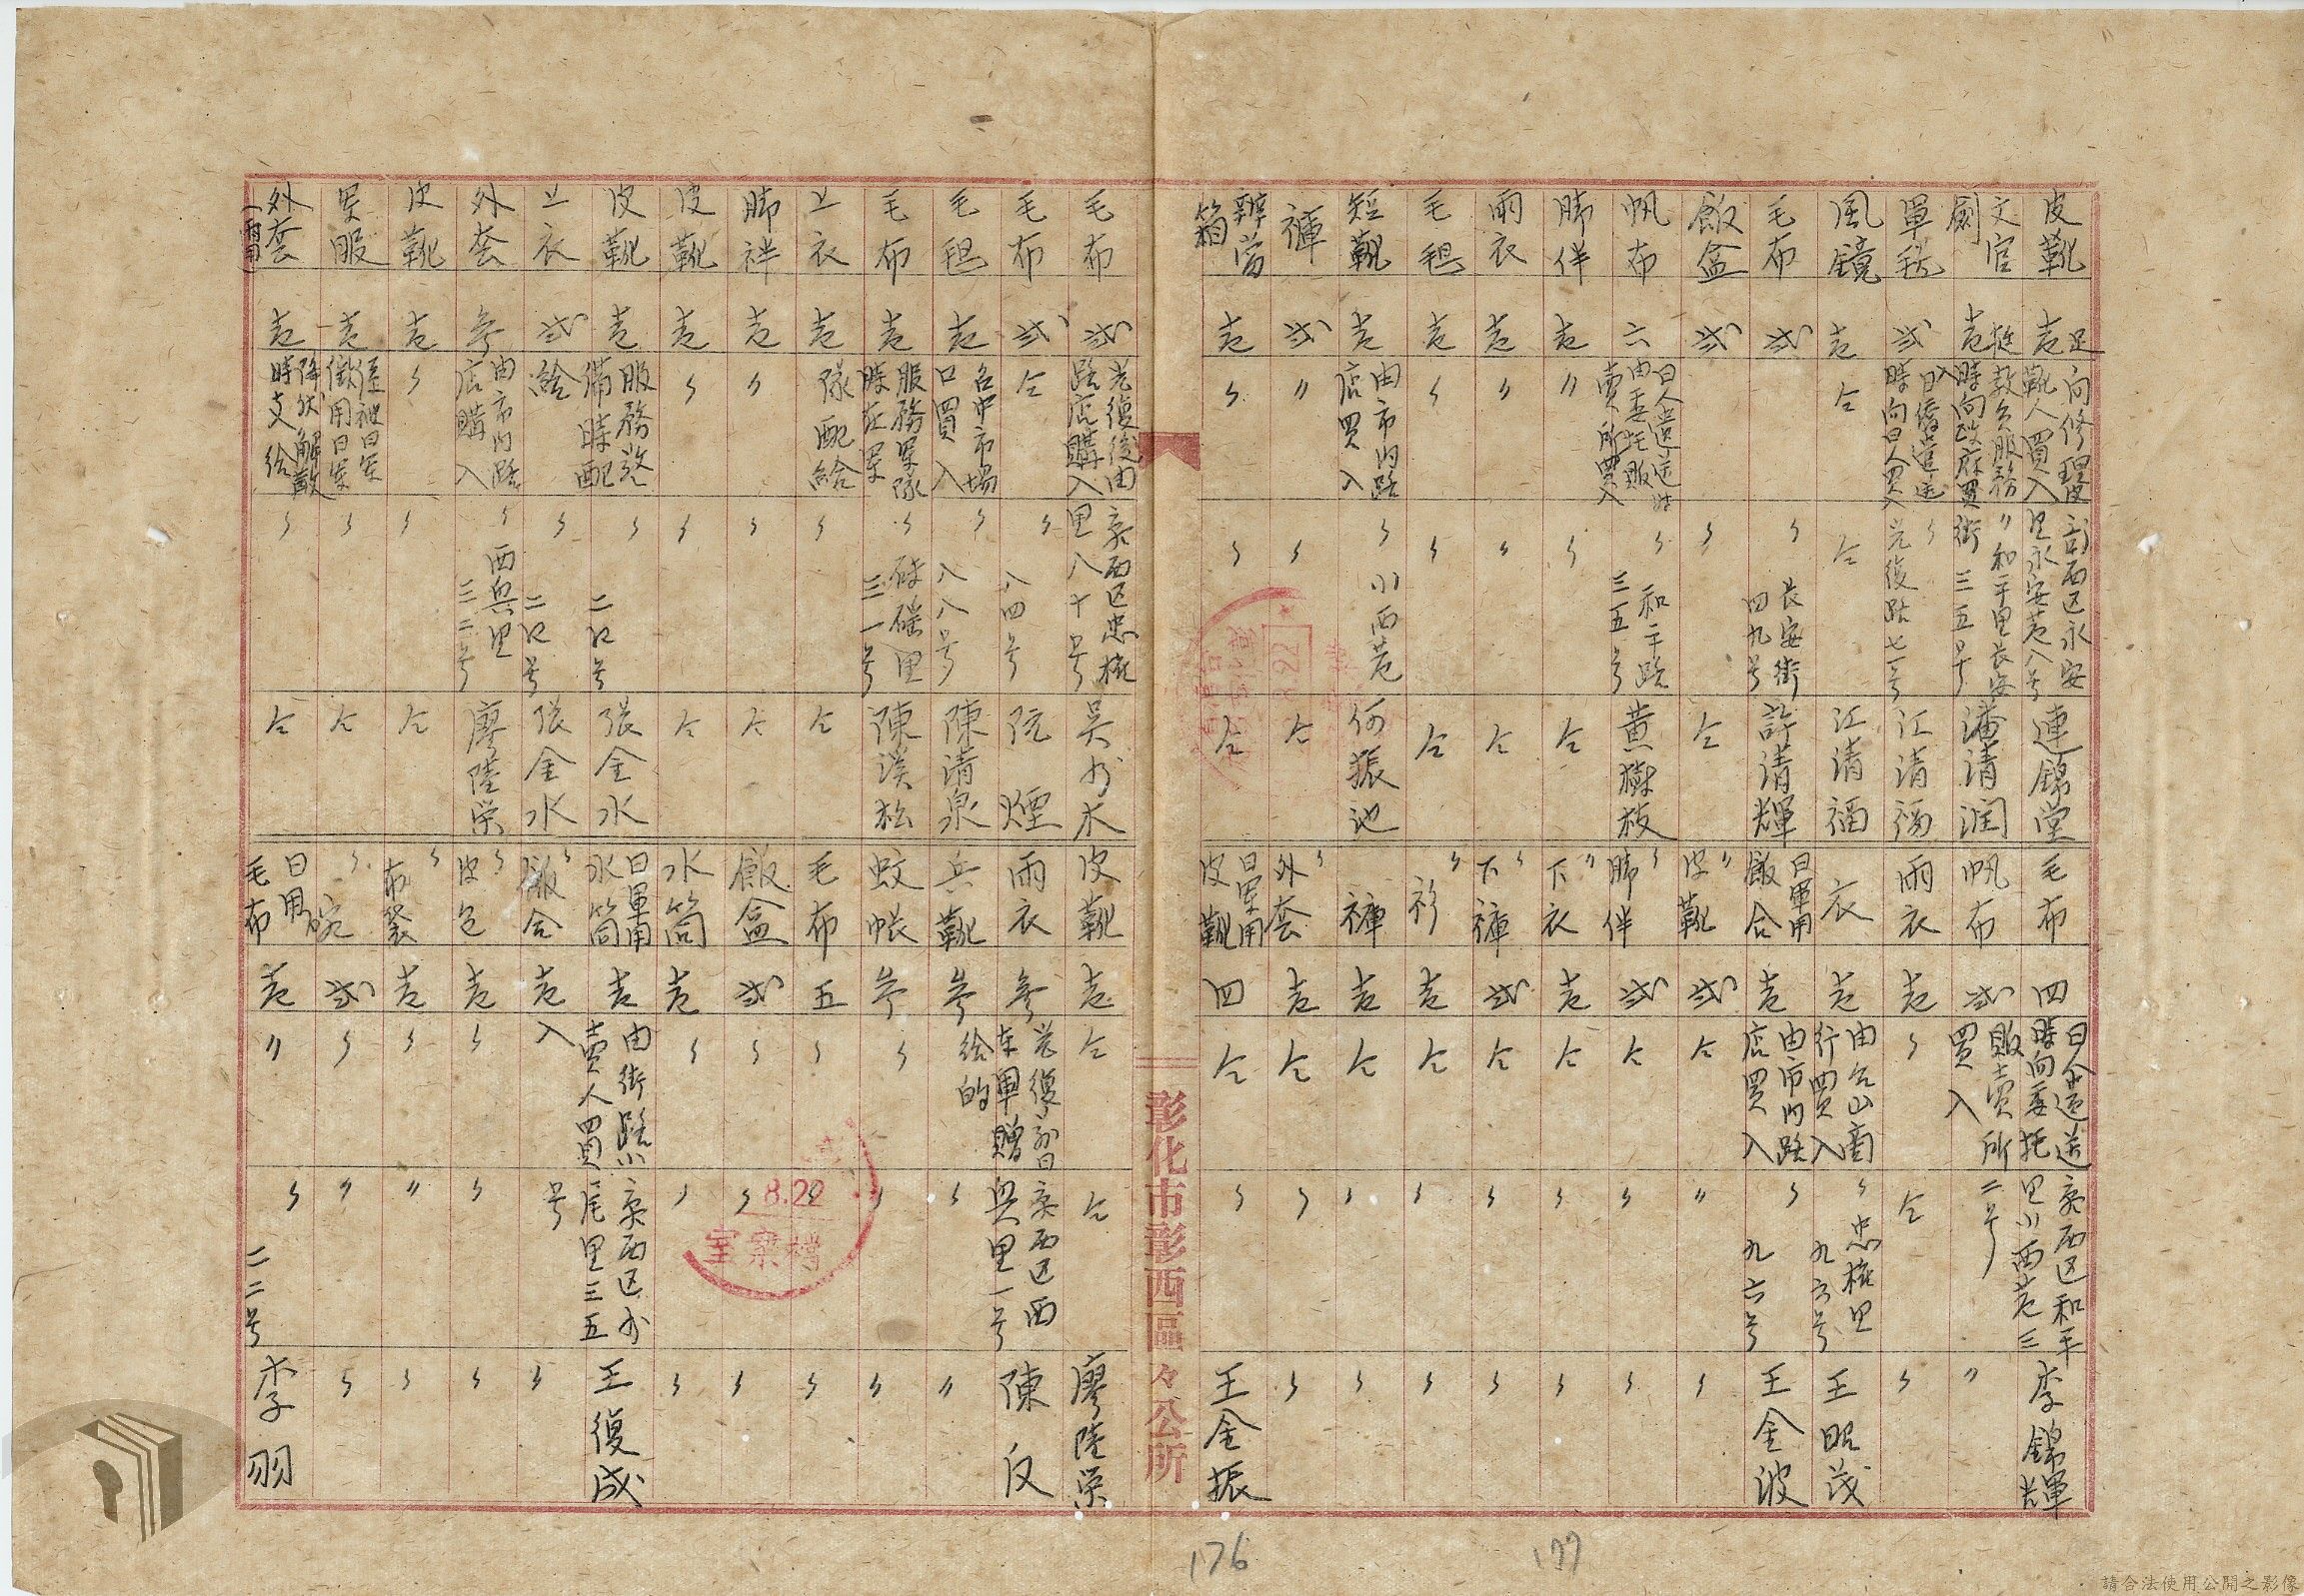 皮靴 壱足 向修理皮靴人買入 彰西区永安里永安巷八号 連錦堂
文官劍 壱挺 教員服務時向政府買入 〃和平里長安街三五号 潘清潤
軍毯 弍 日僑遣送時向日人買入 〃光復路七一号 江清福
風鏡 壱 仝 仝 江清福
毛布 弍 〃長安街四九号 許清輝
飯盒 弍 〃 仝
帆布 六 日人遣送时由委托販賣所買入 〃和平路三五号 黄樹枝
脚伴 壱 〃 〃 仝
雨衣 壱 〃 〃 仝
毛毯 壱 〃 〃 仝
短靴 壱 由市内路店買入 〃小西巷 何振池
褲 弍 〃 〃 仝
辨當箱 壱 〃 〃 仝
毛布 四 日人遣送時向委托販賣所買入 彰西区和平里小西巷三二号 李錦輝
帆布 弍 〃
雨衣 壱 〃 仝 〃
衣 壱 由台山商行買入 〃忠権里九六号 王昭茂
日軍用飯合 壱 由市内路店買入 〃九六号 王金波
〃皮靴 弍 仝 〃 〃
〃脚伴 弍 仝 〃 〃
〃下衣 壱 仝 〃 〃
〃下褲 弍 仝 〃 〃
〃衫 壱 仝 〃 〃
褲 壱 仝 〃 〃
〃外套 壱 仝 〃 〃
日軍用皮靴 四 仝 〃 王金振
彰化市彰西區々公所
毛布 弍 光復後由路店購入 彰西区忠権里八十号 吳水木
毛布 弍 仝 〃八四号 阮煙
毛毯 壱 台中市場口買入 〃八八号 陳清泉
毛布 壱 服務軍隊時在軍隊配給 〃磚磘里三一号 陳漢松
上衣 壱 〃 仝
脚袢 壱 〃 〃 仝
皮靴 壱 〃 〃 仝
皮靴 壱 服務警備時配給 〃二〇号 張金水
上衣 弍 〃二〇号 張金水
外套 参 由市内路店購入 〃西興里三二号 廖陸栄
皮靴 壱 〃 〃 仝
軍服 壱 徃被日軍徴用日軍降伏解散時支給 〃 仝
外套(雨用) 壱 〃 仝
皮靴 壱 仝 仝 廖陸栄
雨衣 参 光復初日本軍贈給的 彰西区西興里一号 陳仅
兵靴 参 〃 〃
蚊帳 参 〃 〃 〃
毛布 五 〃 〃 〃
飯盒 弍 〃 〃 〃
水筒 壱 〃 〃 〃
日軍用水筒 壱 由街路小賣人買入 彰西区外尾里三五号 王復成
〃飯合 壱 〃
〃皮包 壱 〃 〃 〃
〃布袋 壱 〃 〃 〃
〃碗 弍 〃 〃 〃
日用毛布 壱 〃 〃二二号 李羽
8.22
檔案室
8.22
176
177
請合法使用公開之影像